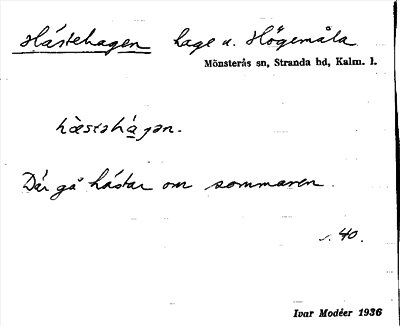 Hästehagen hage u. Högemåla
Mönsterås sn, Stranda hd, Kalm. l.
hästəhágən.
Där gå hästar om sommaren.
s. 40.
Ivar Modéer 1936